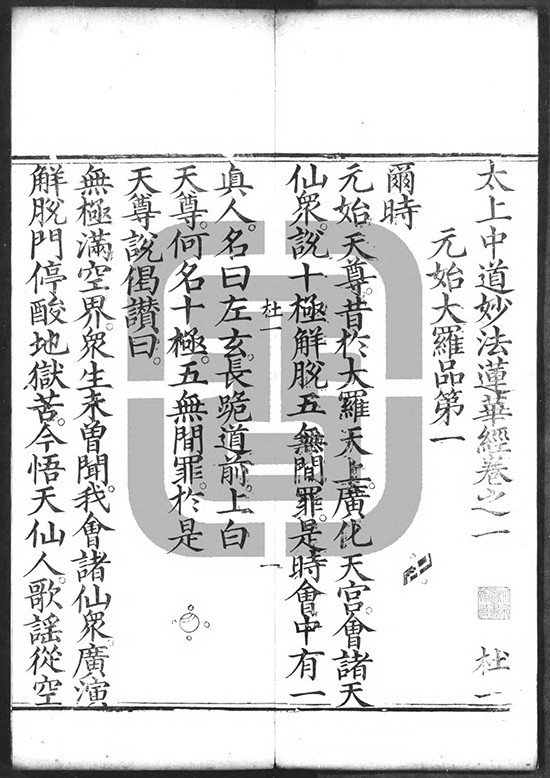 太上中道妙法蓮華經卷之一 杜一
元始大羅品第一
爾時
元始天尊。昔於大羅天上。廣化天宮。會諸天
仙眾。說十極解脫五無間罪。是時會中有一
杜一 一
真人。名曰左玄。長跪道前。上白
天尊。何名十極。五無間罪。於是
天尊說偈讚曰。
無極滿空界。眾生未曾聞。我會諸仙眾。廣演
解脫門。停酸地獄苦。今悟天仙人。歌謠從空